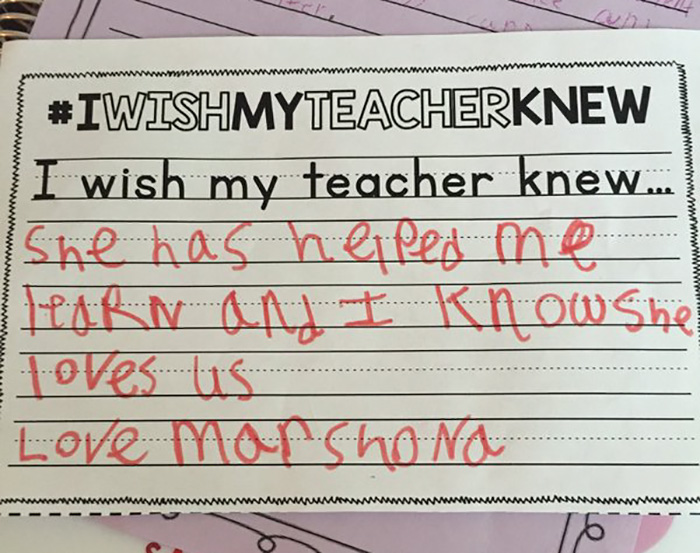 #IWISHMYTEACHERKNEW
I wish my teacher knew...
She has helped me
leaRN and I know she
loves us
Love Marshona